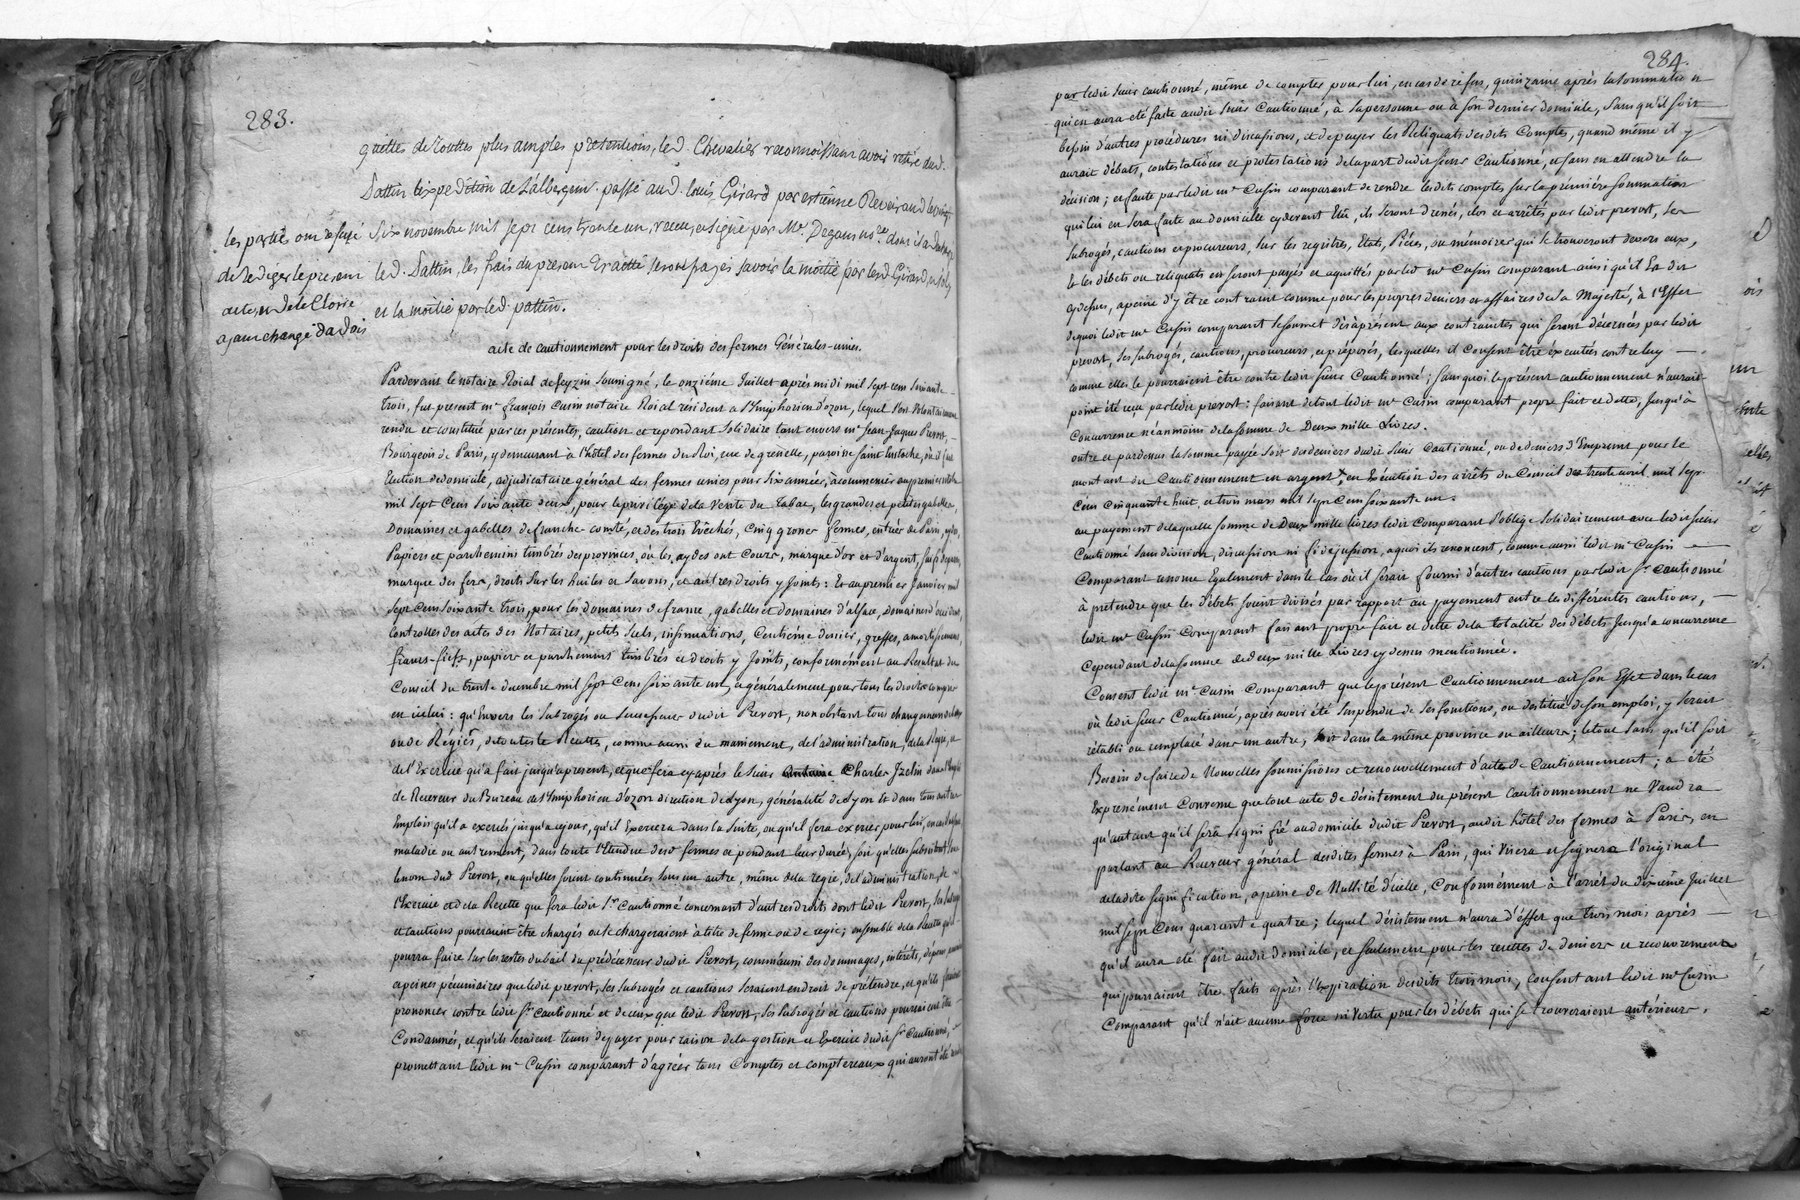 283.
quittes de toutes plus amples pretentions, led. Chevalier reconnoissant avoir retiré dud.
Pattin l'expedition de l'albergem. passé aud. louis Girard par estienne Reveirand le vingt
six novembre mil sept cens trente un, receu et signé par Me. Degans nre. dont il a
led. Pattin, les frais du present traitté seront payés savoir la moitié par led. Girard
et la moitié par led. pattin.
les parties ont refusé
de rediger le present
acte, de le Clorre
ayant changé d'avois
acte de cautionnement pour les droits des fermes Générales-unies.
Pardevant le notaire Roial de feyzin soussigné, le onziéme Juillet après midi mil sept cens soixante-
trois, fut present me françois Cusin notaire Roial résident a St Simphorien d'ozon, lequel s'est volontairement
rendu et constitué par ces présentes, caution et répondant solidaire tant envers me Jean-Jaques Prevost,
Bourgeois de Paris, y demeurant a l'hôtel des fermes du Roi, rue de grenelle, paroisse saint Eustache, où il fait
Election de domicile, adjudicataire général des fermes unies pour six années, à commencer au premier octobre
mil sept Cens soixante deux, pour le privilége de la Vente du Tabac, les grandes et petites gabelles,
Domaines et gabelles de franche-comté, et des trois Evêchés, Cinq grosses fermes, entrées de Paris,
Papiers et parchemins timbrés des provinces, où les aydes ont cours, marque d'or et d'argent,
marque des fers, droits sur les huiles et savons, et autres droits y joints : Et au premier Janvier mil
sept Cens soixante trois, pour les domaines de france, gabelles et domaines d'alsace, domaines d'occident,
Controlles des actes des Notaires, petits scels, insinuations, Centiéme denier, greffes, amortissemens,
francs-fiefs, papiers et parchemins timbrés et droits y Joints, conformément au Resultat du
Conseil du trente decembre mil sept Cens soixante un, et généralement pour tous les droits compris
en icelui : qu'Envers les subrogés ou successeurs dudit Prevost, nonobstant tous changemens de
ou de Régies, de toutes les Recettes, comme aussi du maniement, de l'administration, de la Regie, et
de l'Exercice qu'a fait jusqu'apresent, et que fera cy-après le sieur Antoine Charles Jzelin dans l'Emploi
de Receveur du Bureau de St Simphorien d'ozon direction de Lyon, généralité de Lyon Et dans tous autres
Emplois qu'il a exercés jusqu'a ce jour, qu'il Exercera dans la suite, ou qu'il fera exercer pour lui, en cas
maladie ou autrement, dans toute l'Etendue desd. fermes et pendant leur durée, soit qu'elles subsistent sous
le nom dud. Prevost, ou qu'elles soient continuées sous un autre, même de la regie, de l'administration, de
l'Exercice et de la Recette que fera ledit Sr. cautionné concernant d'autres droits dont ledit Prevost, ses subrogés
et cautions pourraient être chargés ou se chargeraient à titre de ferme ou de regie ; ensemble de la Recette qu'il
pourra faire sur les restes du bail du prédécesseur dudit Prevost, comm'aussi des dommages, intérêts, dépens,
et peines pécuniaires que ledit prevost, ses subrogés et cautions seraient en droit de prétendre, et qu'ils feraient
prononcer contre ledit Sr cautionné et de ceux que ledit Prevost, ses subrogés et cautions pourraient être
Condamnés, et qu'ils seraient tenus de payer pour raison de la gestion et Exercice dudit Sr Cautionné,
promettant ledit me Cusin comparant d'agréer tous Comptes et comptereaux qui auront été rendus
284.
par ledit sieur cautionné, même de compter pour lui, en cas de refus, quinzaine après la sommation
qui en aura été faite audit sieur Cautionné, à sa personne ou à son dernier domicile, sans qu'il soit
besoin d'autres procédures ni discussions, et de payer les Reliquats desdits Comptes, quand même il y
aurait débats, contestations et protestations de la part dudit sieur Cautionné, et sans en attendre la
décision ; et faute par ledit me Cusin comparant de rendre lesdits comptes sur la première sommation
qui lui en sera faite au domicile cydevant Elû, ils seront dressés, clos et arrêtés par ledit prevost, ses
subrogés, cautions et procureurs, sur les registres, Etats, Piéces, ou mémoires qui se trouveront devers eux,
et les débets ou reliquats en seront payés et aquittés par led. me Cusin comparant ainsi qu'il Est dit
cydessus, a peine d'y être contraint comme pour les propres deniers et affaires de sa Majesté, à l'Effet
dequoi ledit me Cusin comparant se soumet dès àprésent aux contraintes qui seront décernées par ledit
prevost, ses subrogés, cautions, procureurs, et préposés, lesquelles il consent être éxécutées contre luy
comme elles le pourraient être contre ledit sieur Cautionné ; sans quoi le présent cautionnement n'aurait
point été reçu par ledit prevost : faisant du tout ledit me Cusin comparant propre fait et dette, jusqu'à
concurrence néanmoins de la somme de Deux mille Livres.
outre et pardessus la somme payée soit des deniers dudit sieur Cautionné, ou de deniers d'Emprunt pour le
montant du Cautionnement en argent, en Exécution des arrêts du Conseil des trente avril mil sept
Cens cinquante huit, et trois mars mil sept Cens soixante un.
au payement de laquelle somme de Deux mille livres ledit comparant s'oblige solidairement avec ledit sieur
Cautionné sans division, discussion ni fidejussion, a quoi ils renoncent, comme aussi ledit me Cusin
Comparant renonce Egalement dans le cas où il serait fourni d'autres cautions par ledit Sr. cautionné
à prétendre que les débets soient divisés par rapport au payement entre les différentes cautions,
ledit me Cusin Comparant faisant propre fait et dette de la totalité des débets jusqu'a concurrence
cependant de la somme de deux mille Livres cydessus mentionnée.
Consent ledit me Cusin Comparant que le présent Cautionnement ait son Effet dans le cas
où ledit sieur Cautionné, après avoir été suspendu de ses fonctions, ou destitué de son emploi, y serait
rétabli ou remplacé dans un autre, soit dans la même province ou ailleurs ; le tout sans qu'il soit
Besoin de faire de Nouvelles soumissions et renouvellement d'actes de Cautionnement ; a été
Expressément Convenu que tout acte de désistement du présent Cautionnement ne Vaudra
qu'autant qu'il sera signifié au domicile dudit Prevost, audit hôtel des fermes à Paris, en
parlant au Receveur général desdites fermes à Paris, qui Visera et signera l'original
de ladite signification, a peine de Nullité d'icelle, Conformément à l'arrêt du dixiéme Juillet
mil sept Cens quarante quatre ; lequel désistement n'aura d'éffet que trois mois après
qu'il aura été fait audit domicile, et seulement pour les recettes de deniers et recouvremens
qui pourraient être faits après l'expiration desdits trois mois, consentant ledit me Cusin
Comparant qu'il n'ait aucune force ni Vertu pour les débets qui se trouveraient antérieurs.